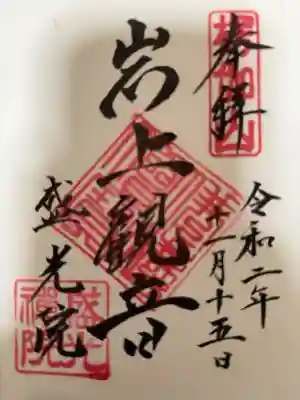 奉拝
令和二年
十一月十五日
岩上観音
盛光院
盛光
禅院